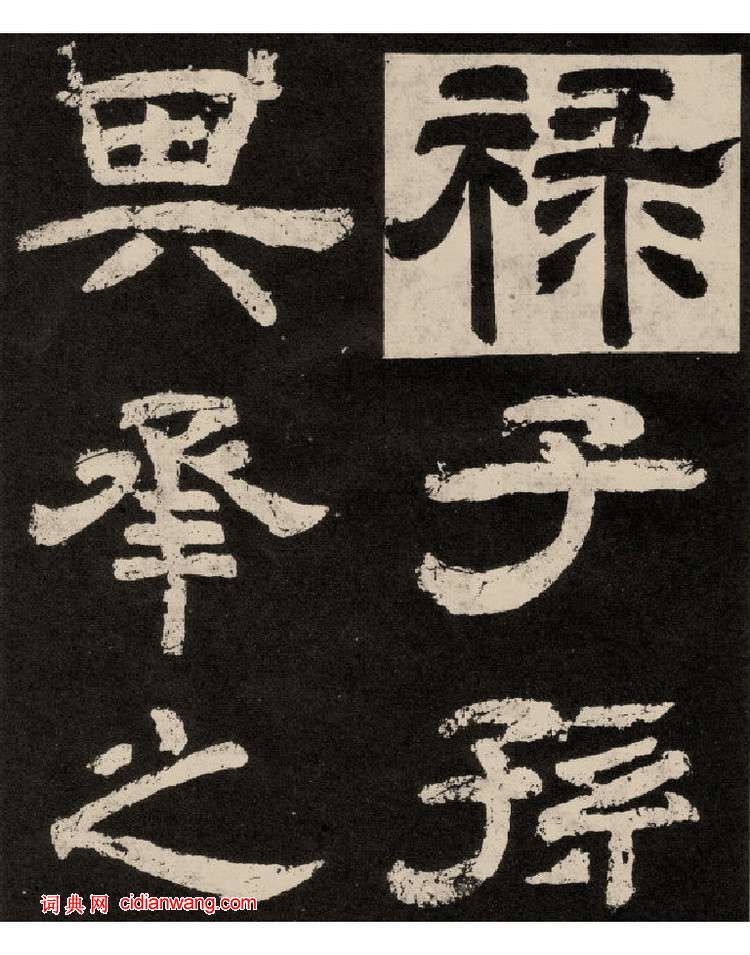 禄子孫
承之
词典网 cidianwang.com